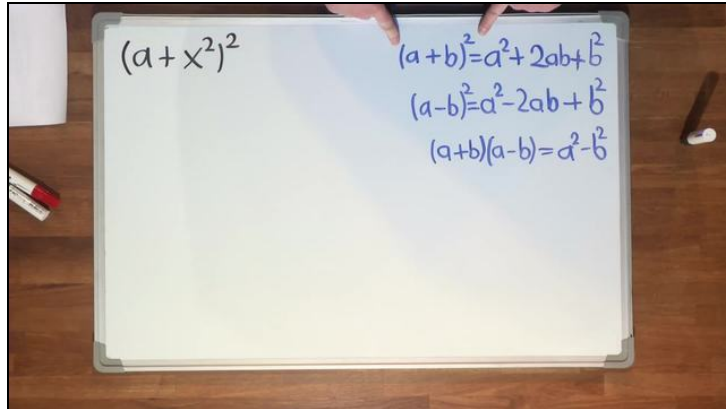 (a+x²)²
(a+b)²=a²+2ab+b²
(a-b)²=a²-2ab+b²
(a+b)(a-b)=a²-b²